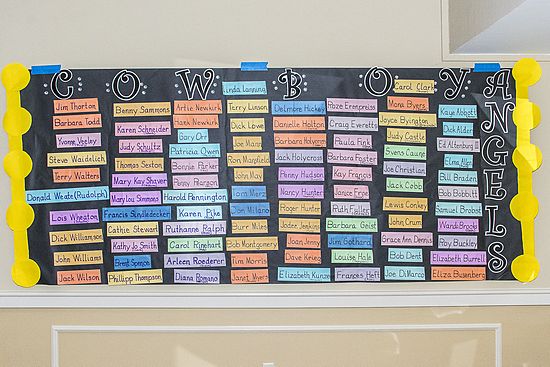 COWBOY
ANGELS
Jim Thorton
Barbara Todd
Yvonne Veeley
Steve Waidelich
Terry Walters
Donald Weate (Rudolph)
Lois Wheaton
Dick Williamson
John Williams
Jack Wilson
Benny Sammons
Karen Schneider
Judy Schultz
Thomas Sexton
Mary Kay Shaver
Marylou Simmons
Francis
Cathie Stewart
Kathy Jo Smith
Brent Spence
Phillipp Thompson
Artie Newkirk
Hank Newkirk
Gary Orr
Patricia Owen
Bonnie Parker
Penny Pearson
Harold Pennington
Karen Pike
Ruthanne Ralph
Carol Rinehart
Arleen Roederer
Diana Romano
Linda Lanning
Terry Linson
Dick Lowe
Joe Mann
Ron Mansfield
John May
Tom Merz
Jon Milano
Burr Miles
Bob Montgomery
Tim Morris
Janet Myers
Delmore Hickey
Danielle Holton
Barbara Holycross
Jack Holycross
Penny Hudson
Nancy Hunter
Roger Hunter
Jodee Jenny
Joan Jenny
Dave Krieg
Elizabeth Kunze
Roze Ernpreiss
Craig Everetts
Paula Fink
Barbara Foster
Kay Francis
Janice Free
Ruth Fuller
Barbara Geist
Jim Gothard
Louise Hale
Frances Heft
Carol Clark
Mona Byers
Joyce Byington
Judy Castle
Svens Caune
Joe Christian
Jack Cobb
Lewis Conkey
John Crum
Grace Ann Dennis
Bob Dent
Joe DiMarco
Kaye Abbott
Dick Alder
Ed Altenburg II
Elma Alter
Bill Braden
Bob Bobbitt
Samuel Brobst
Wandi Brooks
Roy Buckley
Elizabeth Burrell
Eliza Busenberg